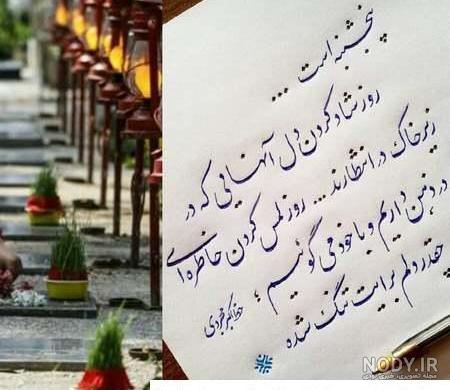 پنجشنبه است ...
روز شاد کردن دل آنهایی که در
زیر خاک در انتظارند ... روز لمس کردن خاطره ای
در ذهن داریم و با خود می گوئیم ؛
چقدر دلم برایت تنگ شده
NODY.IR
مجله تصویری خبری نودی